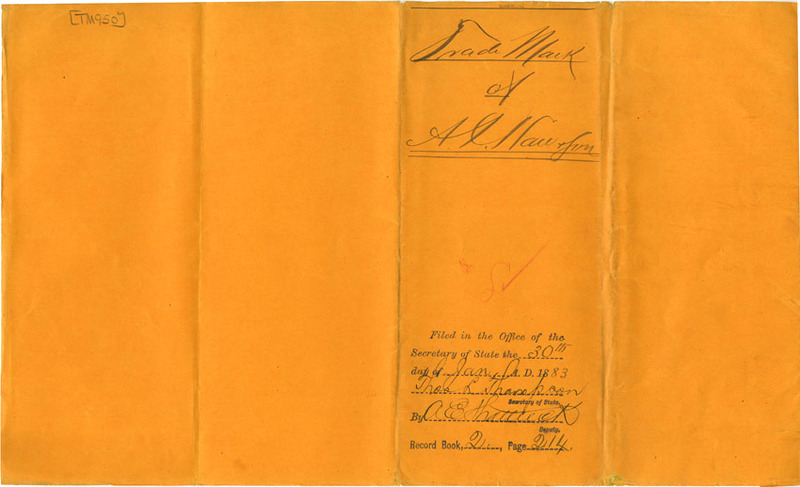 [TM950]
Trade Mark
of
A. L.
Filed in the Office of the
Secretary of State the 30th
day of Jan, A. D. 1883
Thos L Thompson
Secretary of State.
By A E Shattuck
Deputy.
Record Book, 2, Page 214.